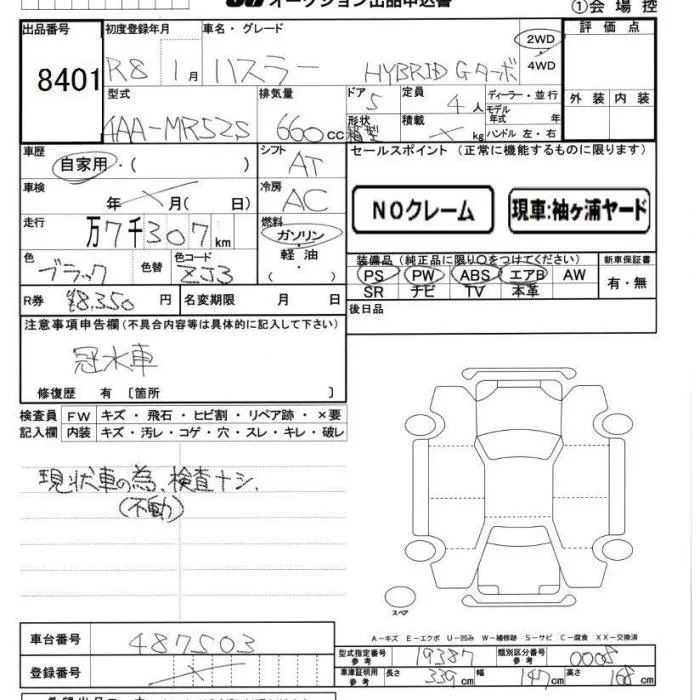 オークション出品申込書
①会場控
出品番号 初度登録年月 車名・グレード 2WD 評価点
8401 R8 1月 ハスラー HYBRID Gターボ 4WD
型式 排気量 ドア 定員 ディーラー・並行 外装 内装
4AA-MR52S 660cc 5 4人 モデル年式 年
形状 箱型 積載 × kg ハンドル 左・右
車歴 自家用・( ) シフト AT セールスポイント (正常に機能するものに限ります)
車検 年 × 月( 日) 冷房 AC NOクレーム 現車:袖ヶ浦ヤード
走行 万7千307km 燃料 ガソリン・軽油・( )
色 ブラック 色替 色コード ZJ3
装備品 (純正品に限り○をつけてください) 新車保証書
PS PW ABS エアB AW 有・無
SR ナビ TV 本革
R券 ¥8,350円 名変期限 月 日 後日品
注意事項申告欄(不具合内容等は具体的に記入して下さい)
冠水車
修復歴 有 〔箇所 〕
検査員 FW キズ・飛石・ヒビ割・リペア跡・×要
記入欄 内装 キズ・汚レ・コゲ・穴・スレ・キレ・破レ
現状車の為、検査ナシ.
(不動)
スペア
A-キズ E-エクボ U-凹み W-補修跡 S-サビ C-腐食 XX-交換済
車台番号 487503 型式指定番号 参考 19387 類別区分番号 参考 0008
登録番号 × 車庫証明用 参考 長さ 339cm 幅 147cm 高さ 168cm